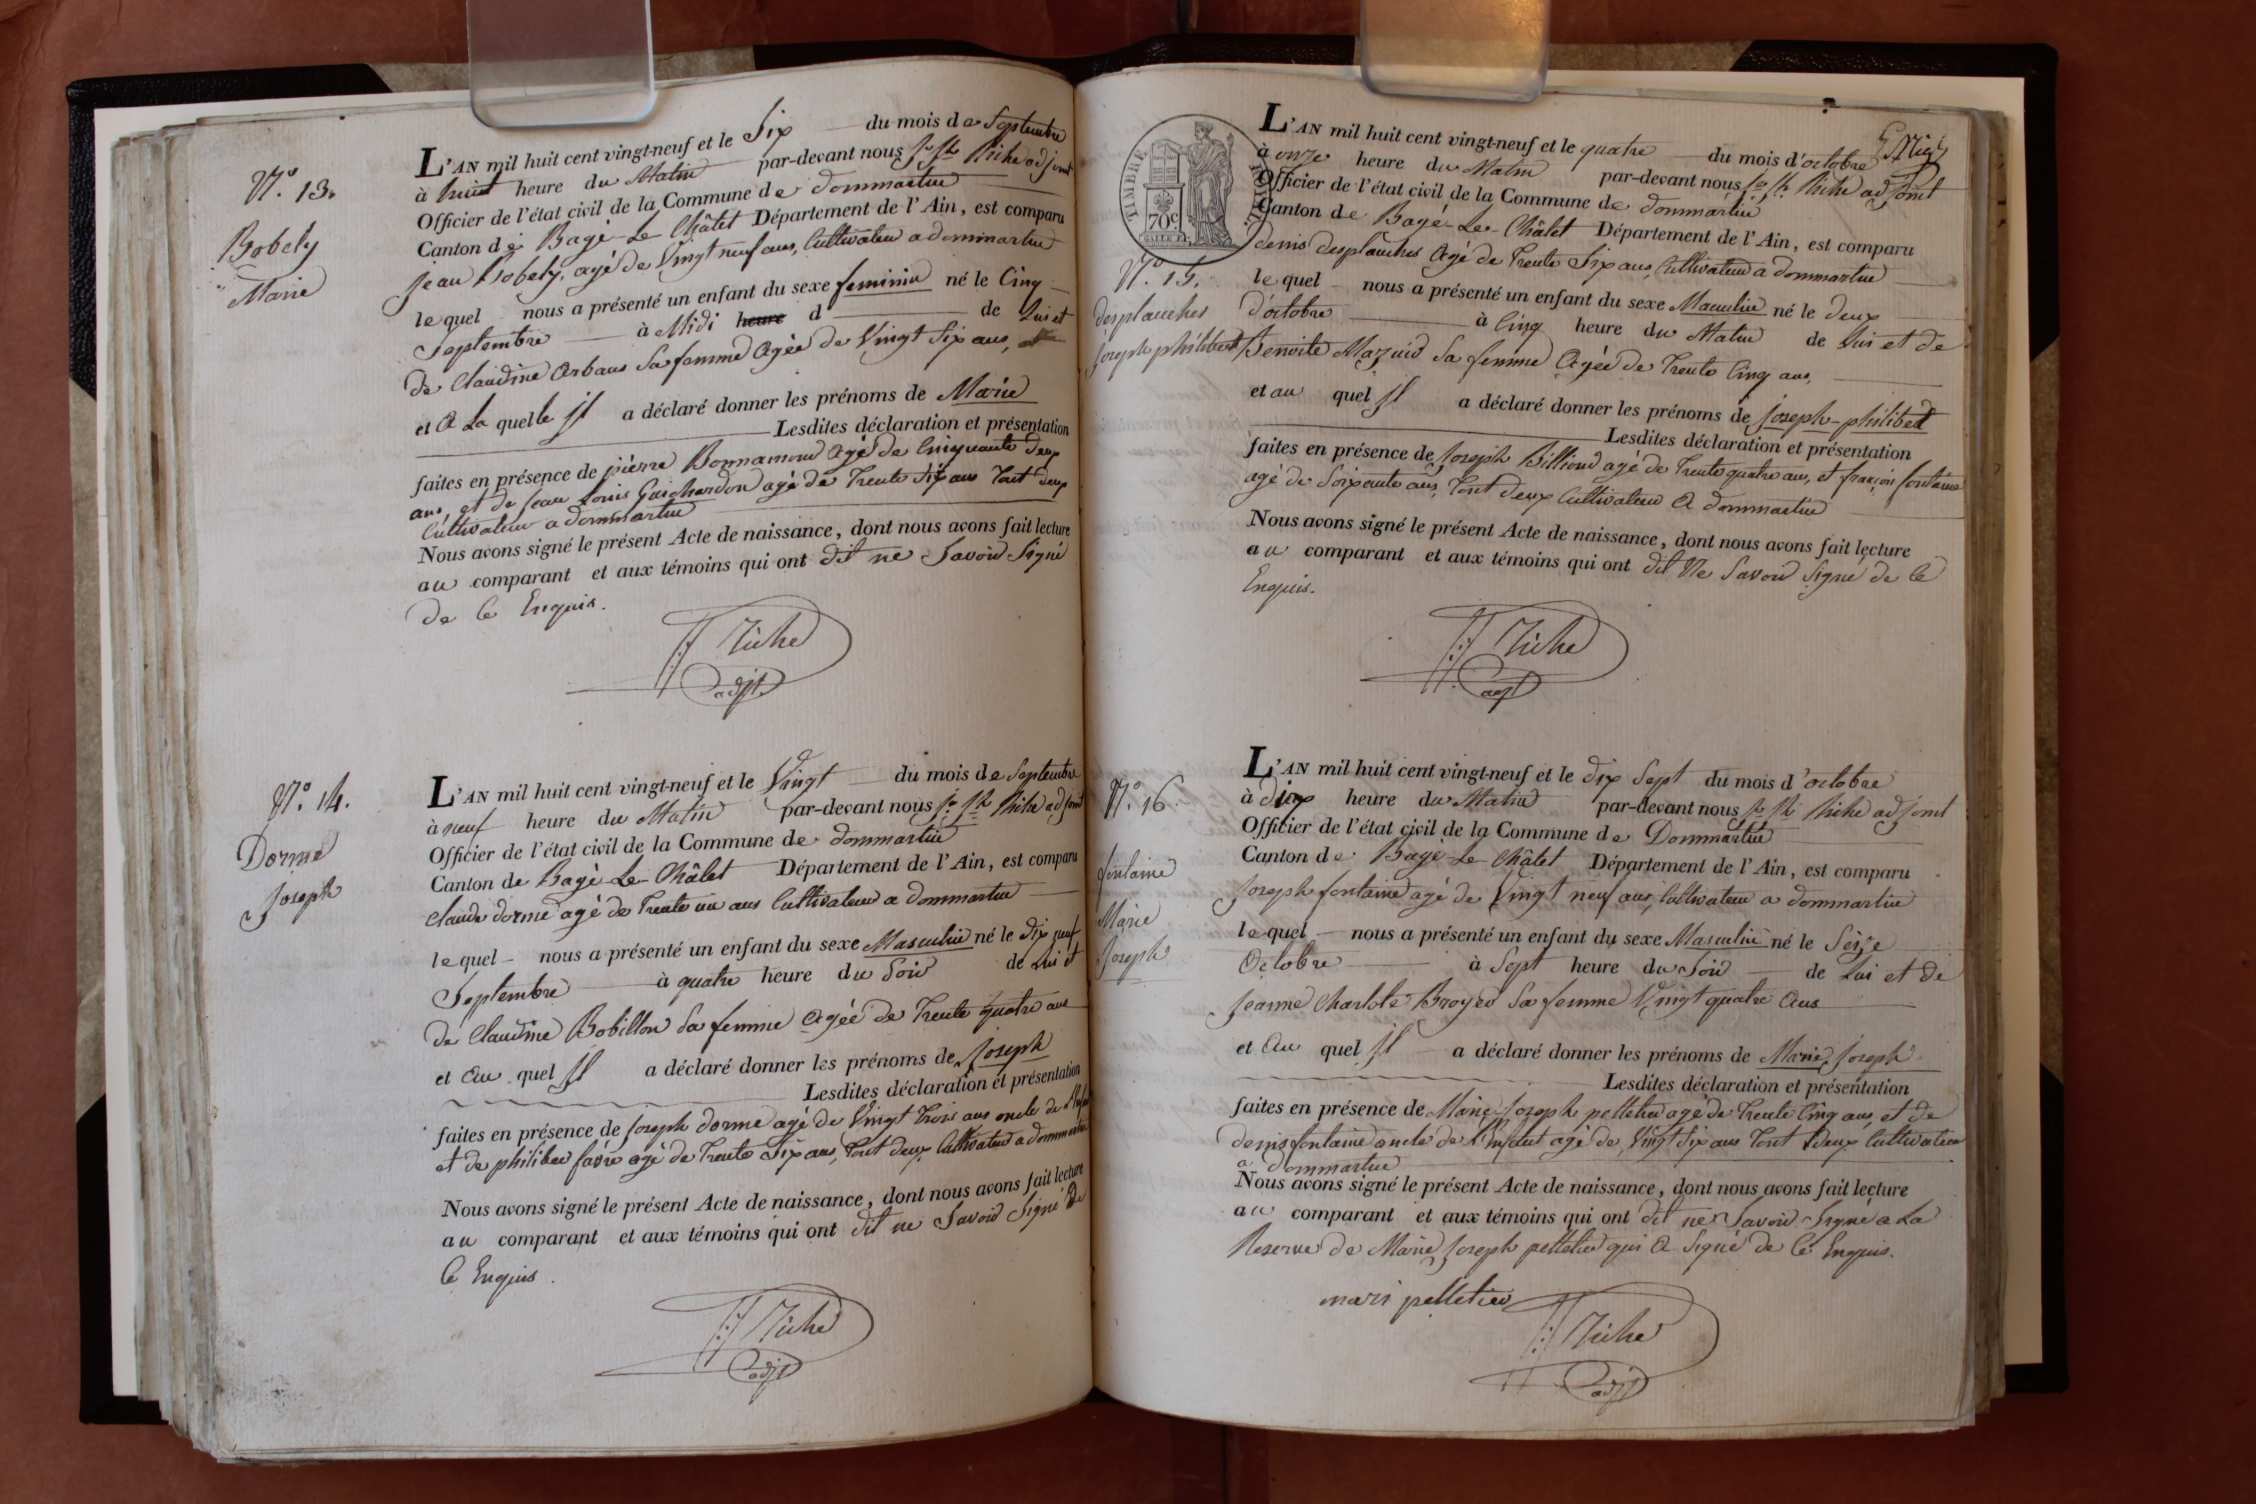 N.° 13.
Bobely
Marie
L'AN mil huit cent vingt-neuf et le Six du mois de Septembre
à huit heure du Matin par-devant nous Jo.ph Riche adjoint
Officier de l'état civil de la Commune de dommartin
Canton de Bagé-Le-Châlet Département de l'Ain, est comparu
jean Bobely, agé de Vingt neuf ans, Cultivateur a dommartin
le quel nous a présenté un enfant du sexe feminin né le Cinq
Septembre à Midi heure d de Lui et
de Claudine Arbans Sa femme Agée de Vingt Six ans,
et A La quelle Il a déclaré donner les prénoms de Marie
Lesdites déclaration et présentation
faites en présence de pierre Bonnamour Agé de Cinquante deux
ans, et de jean Louis Guichardon agé de Trente Six ans Tout deux
Cultivateur a dommartin
Nous avons signé le présent Acte de naissance, dont nous avons fait lecture
au comparant et aux témoins qui ont dit ne Savoir Signé
de Ce Enquis.
Riche
adjt
N.° 14.
Dorme
Joseph
L'AN mil huit cent vingt-neuf et le Vingt du mois de Septembre
à neuf heure du Matin par-devant nous Jo.ph Riche adjoint
Officier de l'état civil de la Commune de dommartin
Canton de Bagé-Le-Châlet Département de l'Ain, est comparu
Claude dorme agé de Trente un ans Cultivateur a dommartin
le quel nous a présenté un enfant du sexe Masculin né le dix neuf
Septembre à quatre heure du Soir de Lui et
de Claudine Bobillon Sa femme Agée de Trente quatre ans
et Au quel Il a déclaré donner les prénoms de Joseph
Lesdites déclaration et présentation
faites en présence de joseph dorme agé de Vingt Trois ans oncle de L'Enfant
et de philiber favre agé de Trente Six ans, Tout deux Cultivateur a dommartin
Nous avons signé le présent Acte de naissance, dont nous avons fait lecture
au comparant et aux témoins qui ont dit ne Savoir Signé de
Ce Enquis.
Riche
adjt
TIMBRE ROYAL
70c
N.° 15.
desplanches
joseph philibert
L'AN mil huit cent vingt-neuf et le quatre du mois d'octobre
à onze heure du Matin par-devant nous Jo.ph Riche adjoint
Officier de l'état civil de la Commune de dommartin
Canton de Bagé-Le-Châlet Département de l'Ain, est comparu
denis desplanches Agé de Trente Six ans, Cultivateur a dommartin
le quel nous a présenté un enfant du sexe Masculin né le deux
d'octobre à Cinq heure du Matin de Lui et de
Benoite Mazuir Sa femme Agée de Trente Cinq ans,
et au quel Il a déclaré donner les prénoms de joseph-philibert
Lesdites déclaration et présentation
faites en présence de Joseph Billioud agé de Trente quatre ans, et françois fontaine
agé de Soixante ans, Tout deux Cultivateur A dommartin
Nous avons signé le présent Acte de naissance, dont nous avons fait lecture
au comparant et aux témoins qui ont dit Ne Savoir Signé de Ce
Enquis.
Riche
adjt
N.° 16.
fontaine
Marie
Joseph
L'AN mil huit cent vingt-neuf et le dix Sept du mois d'octobre
à dix heure du Matin par-devant nous Jo.ph Riche adjoint
Officier de l'état civil de la Commune de Dommartin
Canton de Bagé-Le-Châlet Département de l'Ain, est comparu
Joseph fontaine agé de Vingt neuf ans, Cultivateur a dommartin
le quel nous a présenté un enfant du sexe Masculin né le Seize
Octobre à Sept heure du Soir de Lui et de
jeanne Charlote Broyer Sa femme Vingt quatre Ans
et Au quel Il a déclaré donner les prénoms de Marie Joseph
Lesdites déclaration et présentation
faites en présence de Marie Joseph pelletier agé de Trente Cinq ans, et de
denis fontaine oncle de L'Enfant agé de Vingt Six ans Tout deux Cultivateur
a dommartin
Nous avons signé le présent Acte de naissance, dont nous avons fait lecture
au comparant et aux témoins qui ont dit ne Savoir Signé a La
Reserve de Marie Joseph pelletier qui A Signé de Ce Enquis.
mari pelletier
Riche
adjt